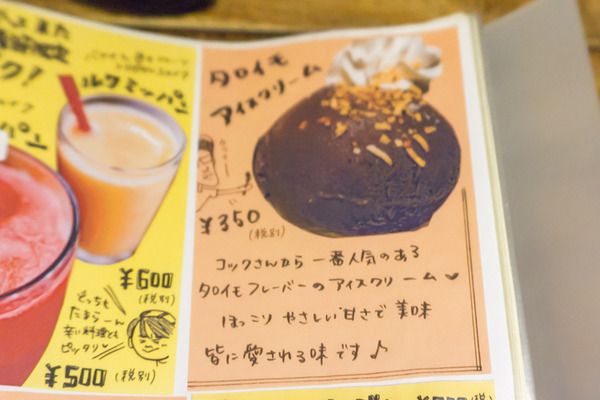 タロイモ
アイスクリーム
¥350
(税別)
コックさんから一番人気のある
タロイモフレーバーのアイスクリーム♥
ほっこりやさしい甘さで美味
皆に愛される味です♪
ルクミッパン
¥600
(税別)
どっちも
たまらーん
辛い料理にも
ピッタリ♥
¥500 (税別)